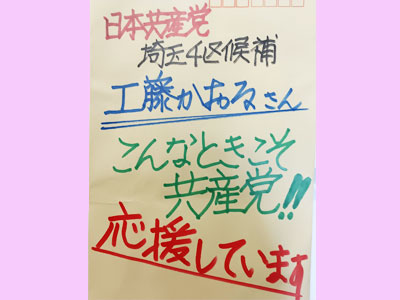 日本共産党
埼玉4区候補
工藤かおるさん
こんなときこそ
共産党!!
応援しています